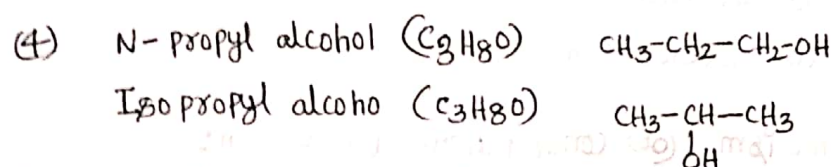 (4) N- propyl alcohol (C3H8O) CH3-CH2-CH2-OH
Iso propyl alcoho (C3H8O) CH3-CH-CH3
OH